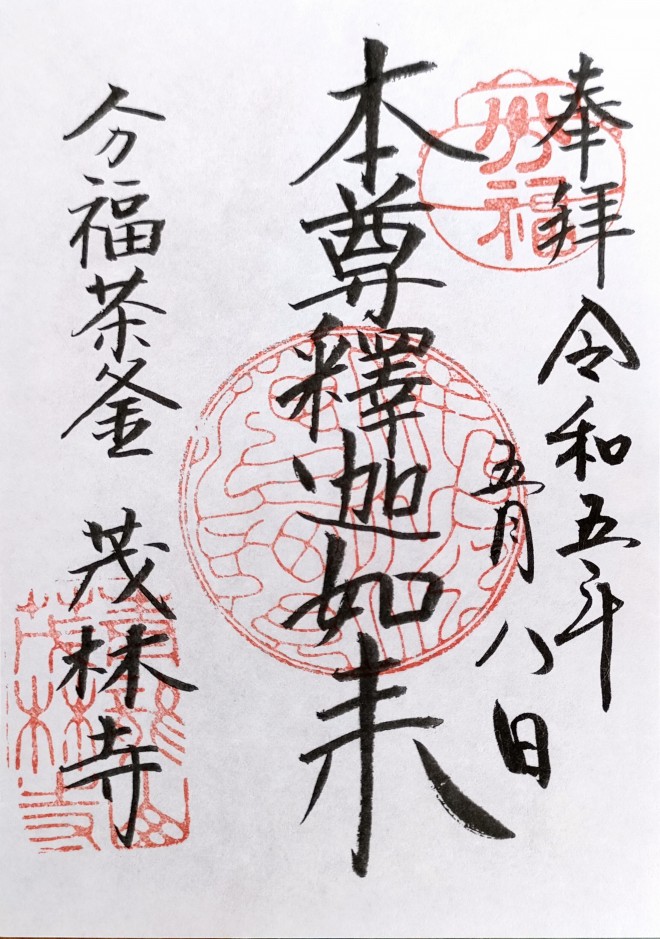 奉拝 令和五年
五月八日
本尊釋迦如来
分福茶釜 茂林寺
分福
茂林寺